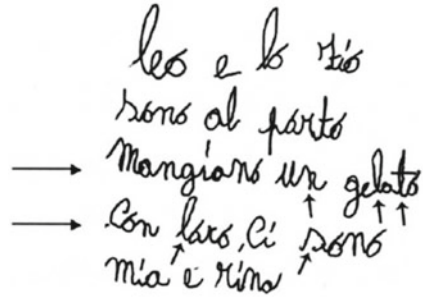 leo e lo zio
sono al parto
mangiano un gelato
con loro, ci sono
mia e rina